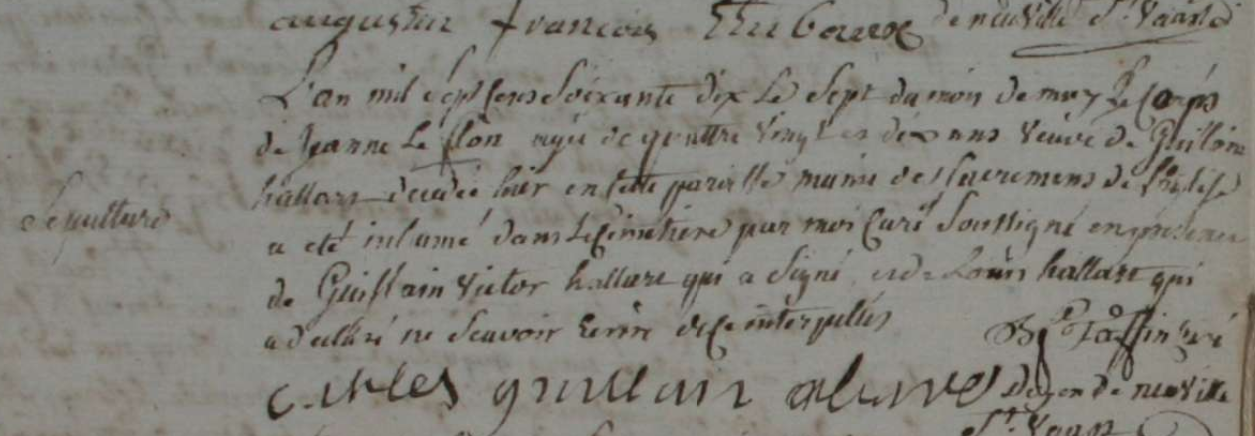 augustin françois Thubourx de neuville St. Vaast
L'an mil sept cens soixante dix le sept du mois de may le Corps
de jeanne Le flon agée de quattre vingts dix ans veuve de Guillain
hallart décédée hier en cette paroisse munie des sacremens de l'église
Sépulture
a eté inhumé dans le Cimetiere par moi Curé soussigné en présence
de Guislain Victor hallart qui a signé et de Louis hallart qui
a déclaré ne scavoir Ecrire de ce interpellés
Taffin curé
guillain
Doyen de neuville
St. Vaast